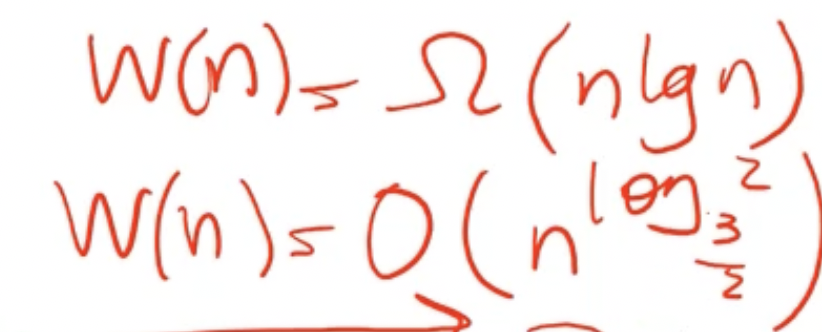 W(n) = Ω(n lg n)
W(n) = O(n^{log_{3/2} 2})